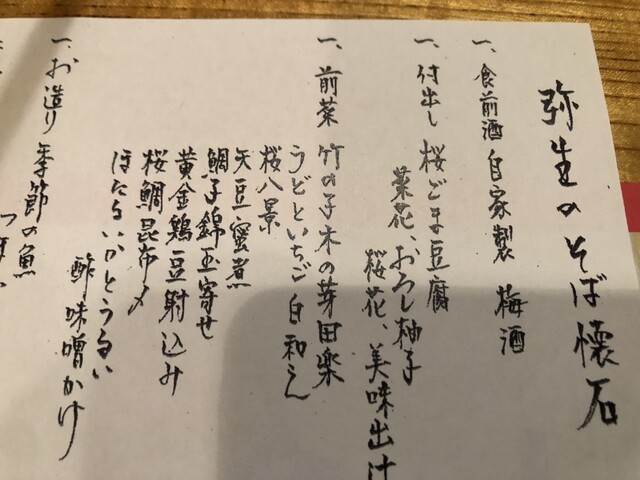 弥生のそば懐石
一、食前酒 自家製 梅酒
一、付出し 桜ごま豆腐
菜花、おろし柚子
桜花、美味出汁
一、前菜 竹の子木の芽田楽
うどといちご白和え
桜八景
天豆蜜煮
鯛子錦玉寄せ
黄金鶏豆射込み
桜鯛昆布〆
ほたるいかとうるい
酢味噌かけ
一、お造り 季節の魚